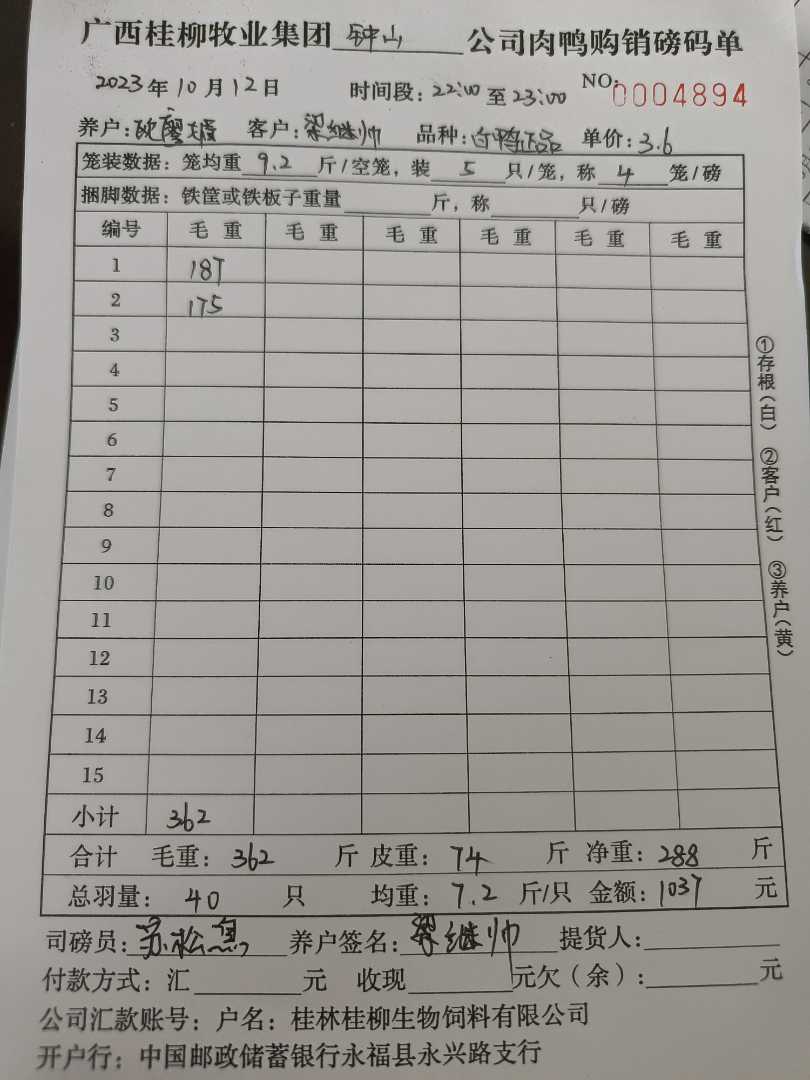 广西桂柳牧业集团 钟山 公司肉鸭购销磅码单
2023年10月12日 时间段：22:00至23:00 NO：0004894
养户： 客户：梁继帅 品种：白鸭正品 单价：3.6
笼装数据：笼均重 9.2 斤/空笼，装 5 只/笼，称 4 笼/磅
捆脚数据：铁筐或铁板子重量 斤，称 只/磅
编号 毛重 毛重 毛重 毛重 毛重 毛重
1 187
2 175
3
4
5
6
7
8
9
10
11
12
13
14
15
小计 362
合计 毛重：362 斤 皮重：74 斤 净重：288 斤
总羽量：40 只 均重：7.2 斤/只 金额：1037 元
司磅员： 养户签名：梁继帅 提货人：
付款方式：汇 元 收现 元欠（余）： 元
公司汇款账号：户名：桂林桂柳生物饲料有限公司
开户行：中国邮政储蓄银行永福县永兴路支行
①存根（白） ②客户（红） ③养户（黄）